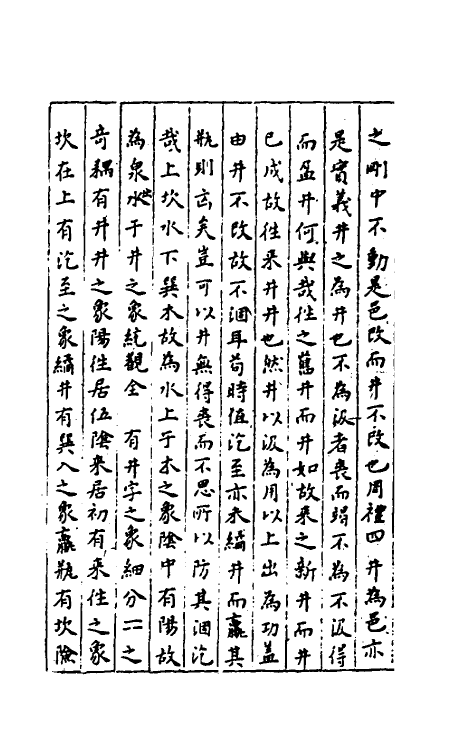 之剛中不動是邑改而井不改也周禮四井為邑亦
是實義井之為井也不為汲者喪而竭不為不汲得
而盈井何與哉往之舊井而井如故來之新井而井
已成故往來井井也然井以汲為用以上出為功蓋
由井不改故不涸耳苟時值汔至亦未繘井而羸其
瓶則㐫矣豈可以井無得喪而不思所以防其涸汔
哉上坎水下巽木故為水上于木之象陰中有陽故
為泉水出于井之象統觀全 有井字之象細分一二之
奇耦有井井之象陽往居伍陰來居初有來往之象
坎在上有汔至之象繘井有巽入之象羸瓶有坎險